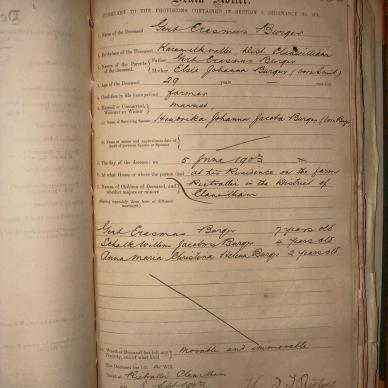 Death Notice.
PURSUANT TO THE PROVISIONS CONTAINED IN SECTION
1. Name of the Deceased Gert Erasmus Burger
2. Birthplace of the Deceased Karamelkvallei Dist. Clanwilliam
3. Names of the Parents of the Deceased. Father Gert Erasmus Burger
Mother Elsie Johanna Burger
4. Age of the Deceased 29 years months
5. Condition in life (occupation) farmer
6. Married or Unmarried, Widower or Widow married,
(a) Name of Surviving Spouse Hendrika Johanna Jacoba Burger
(b) Name or names and approximate date of death of previous Spouse or Spouses
7. The day of the decease: on 5 June 1903
8. At what House or where the person died at his Residence on the farm
9. Names of Children of Deceased, and whether majors or minors Rietvallei in the District of
Clanwilliam
Gert Erasmus Burger 7 years old
Schalk Willem Jacobus Burger 4 years old
Anna Maria Christina Helena Burger 2 years old.
10. Whether Deceased has left any Property, and of what kind Movable and immovable
The Deceased has left a Will.
Dated at Rietvallei
Sept 1903